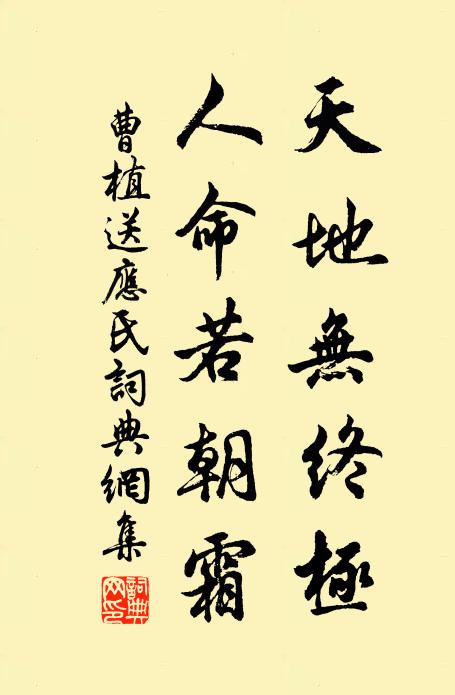 天地無終極
人命若朝霜
曹植送應氏詞典網集
詞典網印